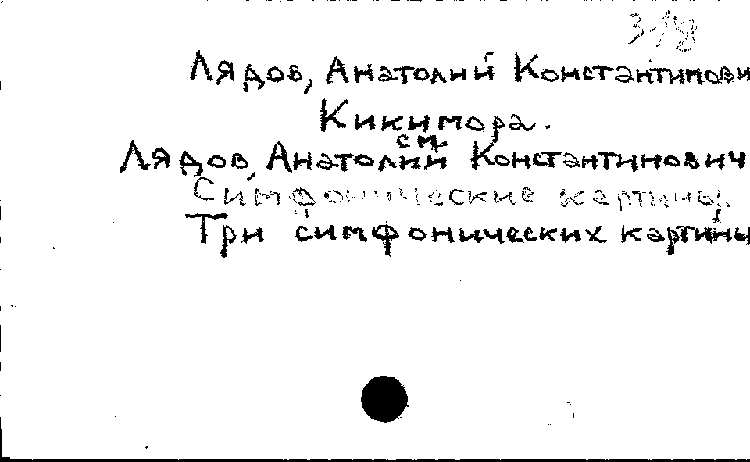 3-18
Лядов, Анатолий Константинови
Кикимора.
см.
Лядов, Анатолий Константинович
Симфонические картины.
Три симфонических картины